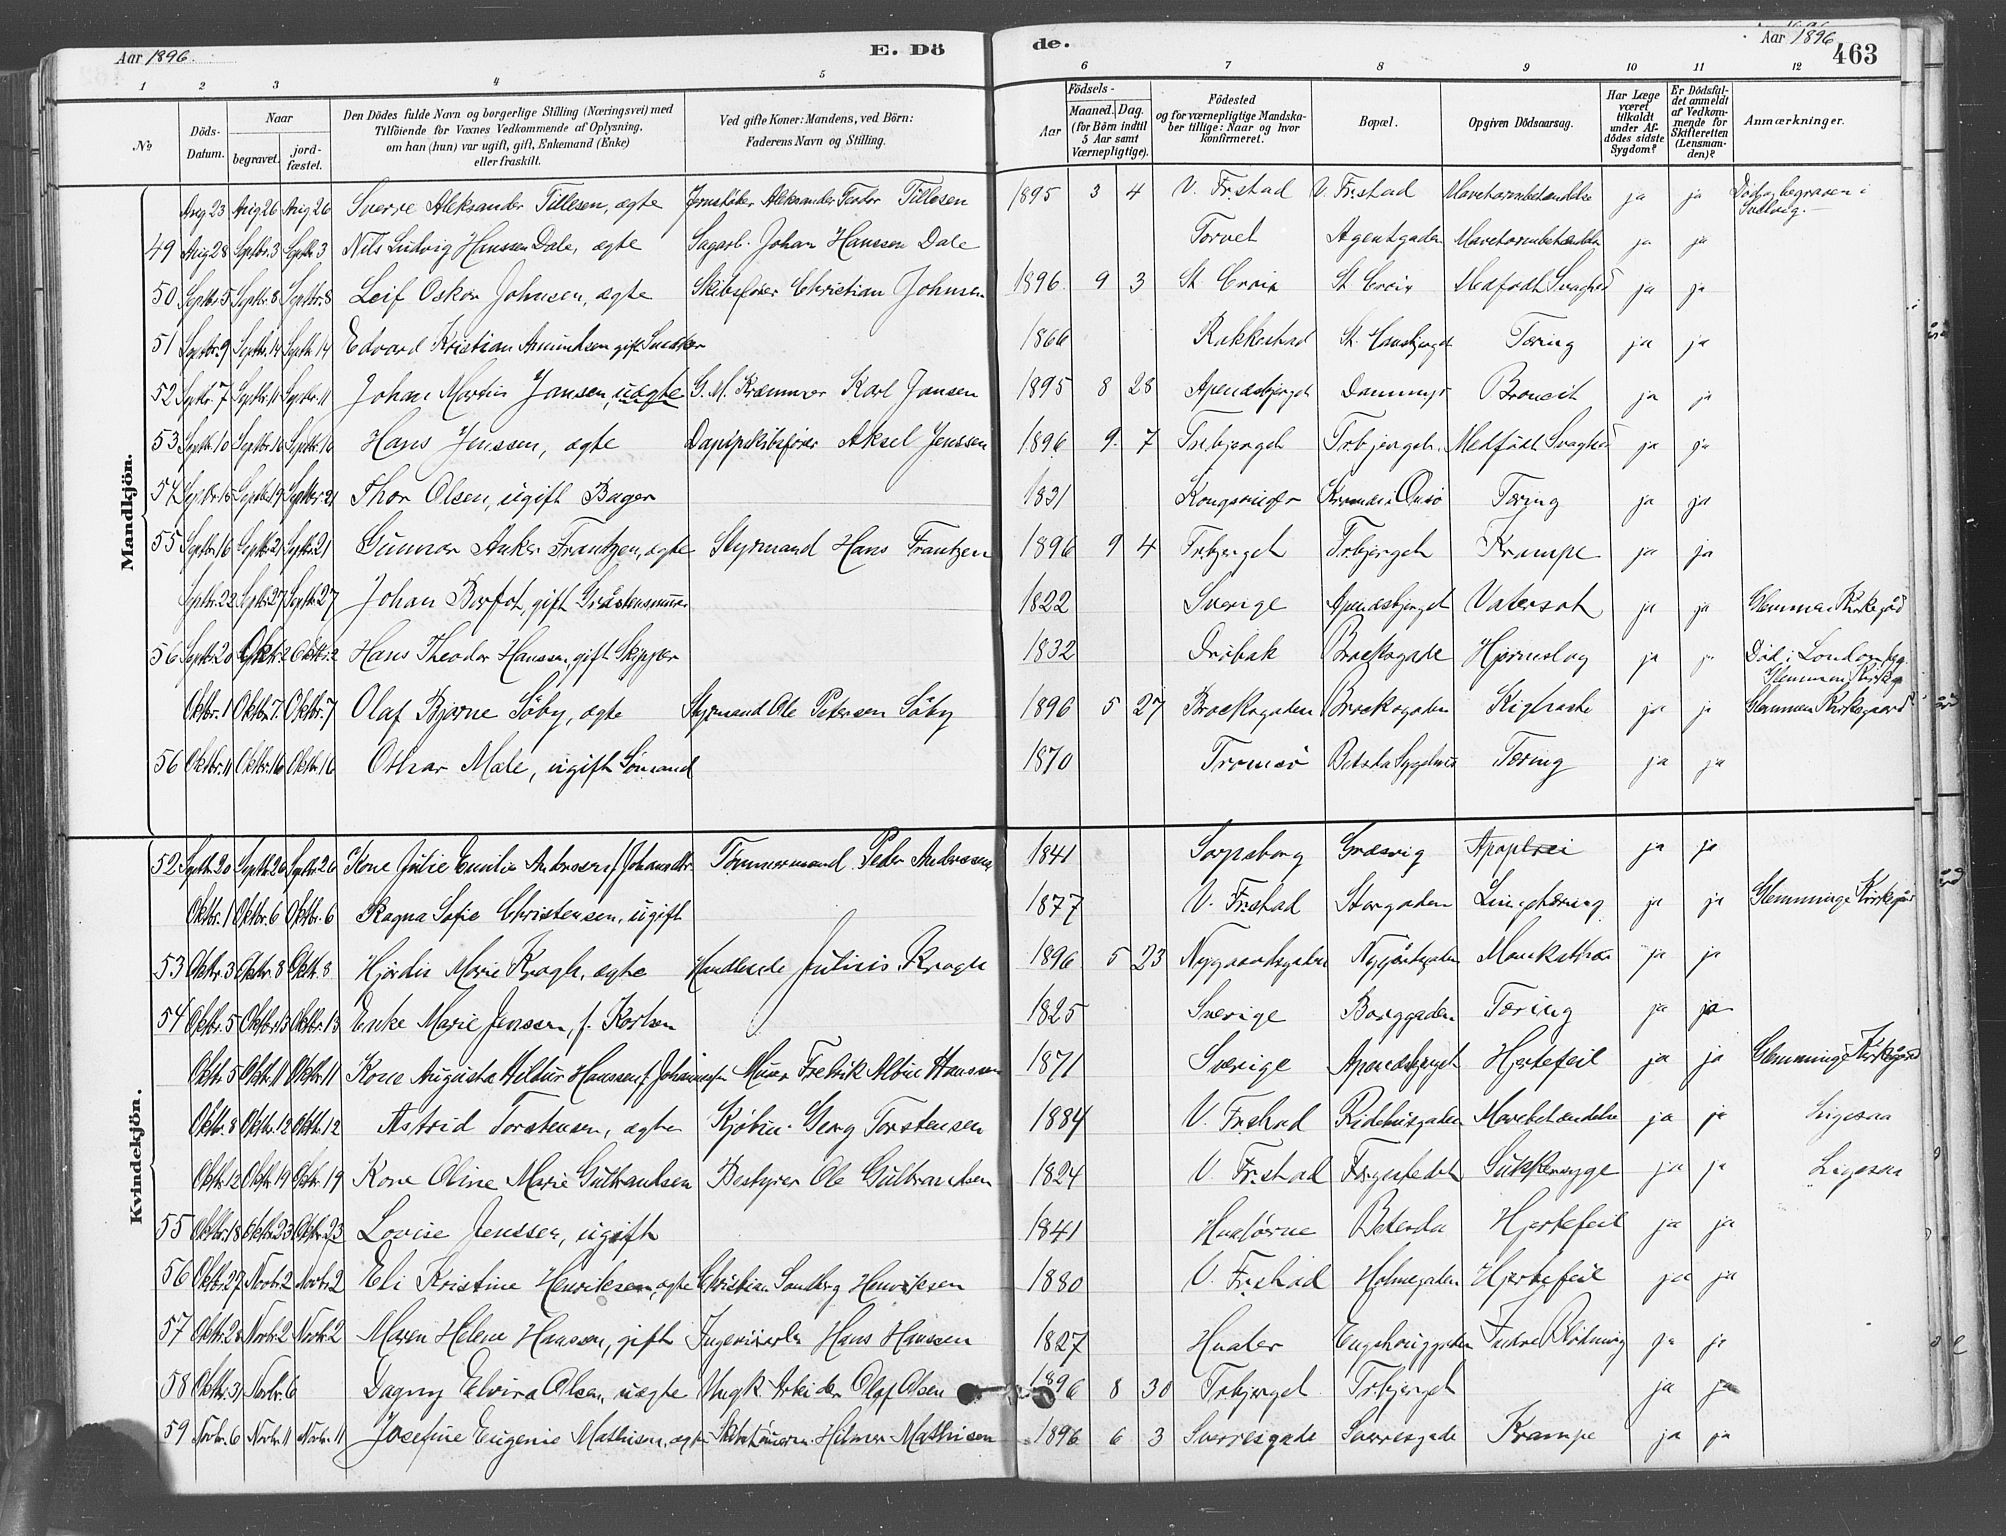 Aar 1896. E. Dö
de. Aar 1896 463
1 2 3 4 5 6 7 8 9 10 11 12
No Döds-Datum. Naar begravet. jordfæstet. Den Dödes fulde Navn og borgerlige Stilling (Næringsvei) med Tilföiende for Voxnes Vedkommende af Oplysning, om han (hun) var ugift, gift, Enkemand (Enke) eller fraskilt. Ved gifte Koner: Mandens, ved Börn: Faderens Navn og Stilling. Aar Födsels- Maaned. Dag. (for Börn indtil 5 Aar samt Værnepligtige). Födested og for værnepligtige Mandskaber tillige: Naar og hvor konfirmeret. Bopæl. Opgiven Dödsaarsag. Har Læge været tilkaldt under Afdödes sidste Sygdom? Er Dödsfaldet anmeldt af Vedkommende for Skifteretten (Lensmanden)? Anmærkninger.
Mandkjön.
Aug 23 Aug 26 Aug 26 Sverre Aleksander Tillesen, ægte Aleksander Teodor Tillesen 1895 3 4 V. Fr.stad V. Fr.stad ja ja Död og begraven i Svelvig.
49 Aug 28 Septbr. 3 Septbr. 3 Nils Ludvig Hanssen Dale, ægte Sagarb. Johan Hanssen Dale Torvet Agentgaden ja ja
50 Septbr. 5 Septbr. 8 Septbr. 8 Leif Oskar Johnsen, ægte Skibsfører Christian Johnsen 1896 9 3 St. Croix St. Croix Medfødt Svaghed ja ja
51 Septbr. 9 Septbr. 14 Septbr. 14 Edvard Kristian Amundsen gift Snedker 1866 Rakkestad St. Hansbjerget Tæring ja ja
52 Septbr. 7 Septbr. 11 Septbr. 11 Johan Martin Jansen, uægte G. M. Kræmmer Karl Jansen 1895 8 28 Apenæsbjerget Dammyr Bronchit ja ja
53 Septbr. 10 Septbr. 16 Septbr. 16 Hans Jenssen, ægte Dampskibsfører Aksel Jenssen 1896 9 7 Trbjerget Trbjerget Medfødt Svaghed ja ja
54 Septbr. 15 Septbr. 19 Septbr. 21 Thor Olsen, ugift Bager 1831 Kongsvinger Onsø Tæring ja ja
55 Septbr. 16 Septbr. 21 Septbr. 21 Gunnar Anker Frantzen, ægte Styrmand Hans Frantzen 1896 9 4 Trbjerget Trbjerget Krampe ja ja
Septbr. 22 Septbr. 27 Septbr. 27 Johan Berfot, gift Gråstensmurer 1822 Sverige Apenæsbjerget Vatersot ja ja Glemmen Kirkegård
56 Septbr. 20 Oktbr. 2 Oktbr. 2 Hans Theodor Hanssen, gift Skipper 1832 Drøbak Brocksgade Hjerneslag ja ja Død i London, beg. Glemmen Kirkeg.
Oktbr. 1 Oktbr. 7. Oktbr. 7 Olaf Bjarne Såby, ægte Styrmand Ole Petersen Såby 1896 5 27 Brocksgaden Brocksgaden Kighoste ja ja Glemmen Kirkegaard
56 Oktbr. 11 Oktbr. 16 Oktbr. 16 Othar Male, ugift Sømand 1870 Tromsø Betsta Sygehus Tæring ja ja
Kvindekjön.
52 Septbr. 20 Septbr. 26 Septbr. 26 Kone Julie Emilie Andersen f. Johansdtr. Tømmermand Peder Andersen 1841 Sarpsborg Græsvig Apoplexi ja ja
Oktbr. 1 Oktbr. 6 Oktbr. 6 Ragna Sofie Christensen, ugift 1877 V. Fr.stad Storgaden Lungetæring ja ja Glemminge Kirkegård
53 Oktbr. 3 Oktbr. 8 Oktbr. 8 Hjørdis Marie Krogh, ægte Handlende Julius Krogh 1896 5 23 Nygaardsgaden Nygårdsgaden Mavekatharr ja ja
54 Oktbr. 5 Oktbr. 13 Oktbr. 13 Enke Marie Jenssen, f. Karlsen 1825 Sverige Borggaden Tæring ja ja
Oktbr. 5 Oktbr. 11 Oktbr. 11 Kone Augusta Hildur Hanssen f. Johannesen Murer Fredrik Albin Hanssen 1871 Sverige Apenæsbjerget Hjertefeil ja ja Glemminge Kirkegård
Oktbr. 8 Oktbr. 12 Oktbr. 12 Astrid Torstensen, ægte Kjøbm. Georg Torstensen 1884 V. Fr.stad Ridehusgaden Mavebetændelse ja ja Ligesaa
Oktbr. 12 Oktbr. 19 Oktbr. 19 Kone Oline Marie Gulbrandsen Bestyrer Ole Gulbrandsen 1824 V. Fr.stad Færgestedet Sukkersyge ja ja Ligesaa
55 Oktbr. 18 Oktbr. 23 Oktbr. 23 Lovise Jenssen, ugift 1841 Hvaløerne Betesda Hjertefeil ja ja
56 Oktbr. 27 Novbr. 2 Novbr. 2 Eli Kristine Henriksen, ægte Christian Sandberg Henriksen 1880 V. Fr.stad Holmegaden Hjertefeil ja ja
57 Oktbr. 28 Novbr. 2 Novbr. 2 Maren Helene Hanssen, gift Hans Hanssen 1827 Hvaler Enghauggaden Indre Blødning ja ja
58 Oktbr. 31 Novbr. 6 Dagny Elvira Olsen, uægte Ungk. Arbeider Olaf Olsen 1896 8 30 Trbjerget Trbjerget ja ja
59 Novbr. 6 Novbr. 11 Novbr. 11 Josefine Eugenie Mathisen, ægte Hilmer Mathisen 1896 6 3 Sverresgade Sverresgade Krampe ja ja